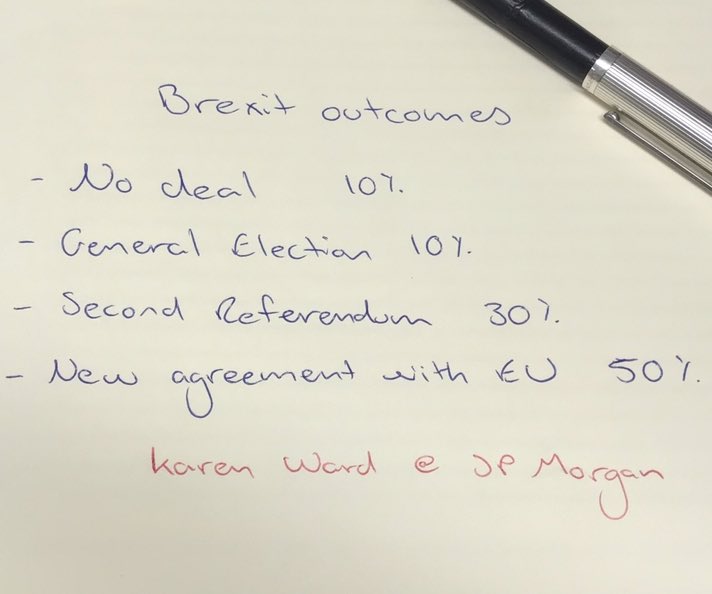 Brexit outcomes
- No deal 10%.
- General Election 10%.
- Second Referendum 30%.
- New agreement with EU 50%.
Karen Ward @ JP Morgan